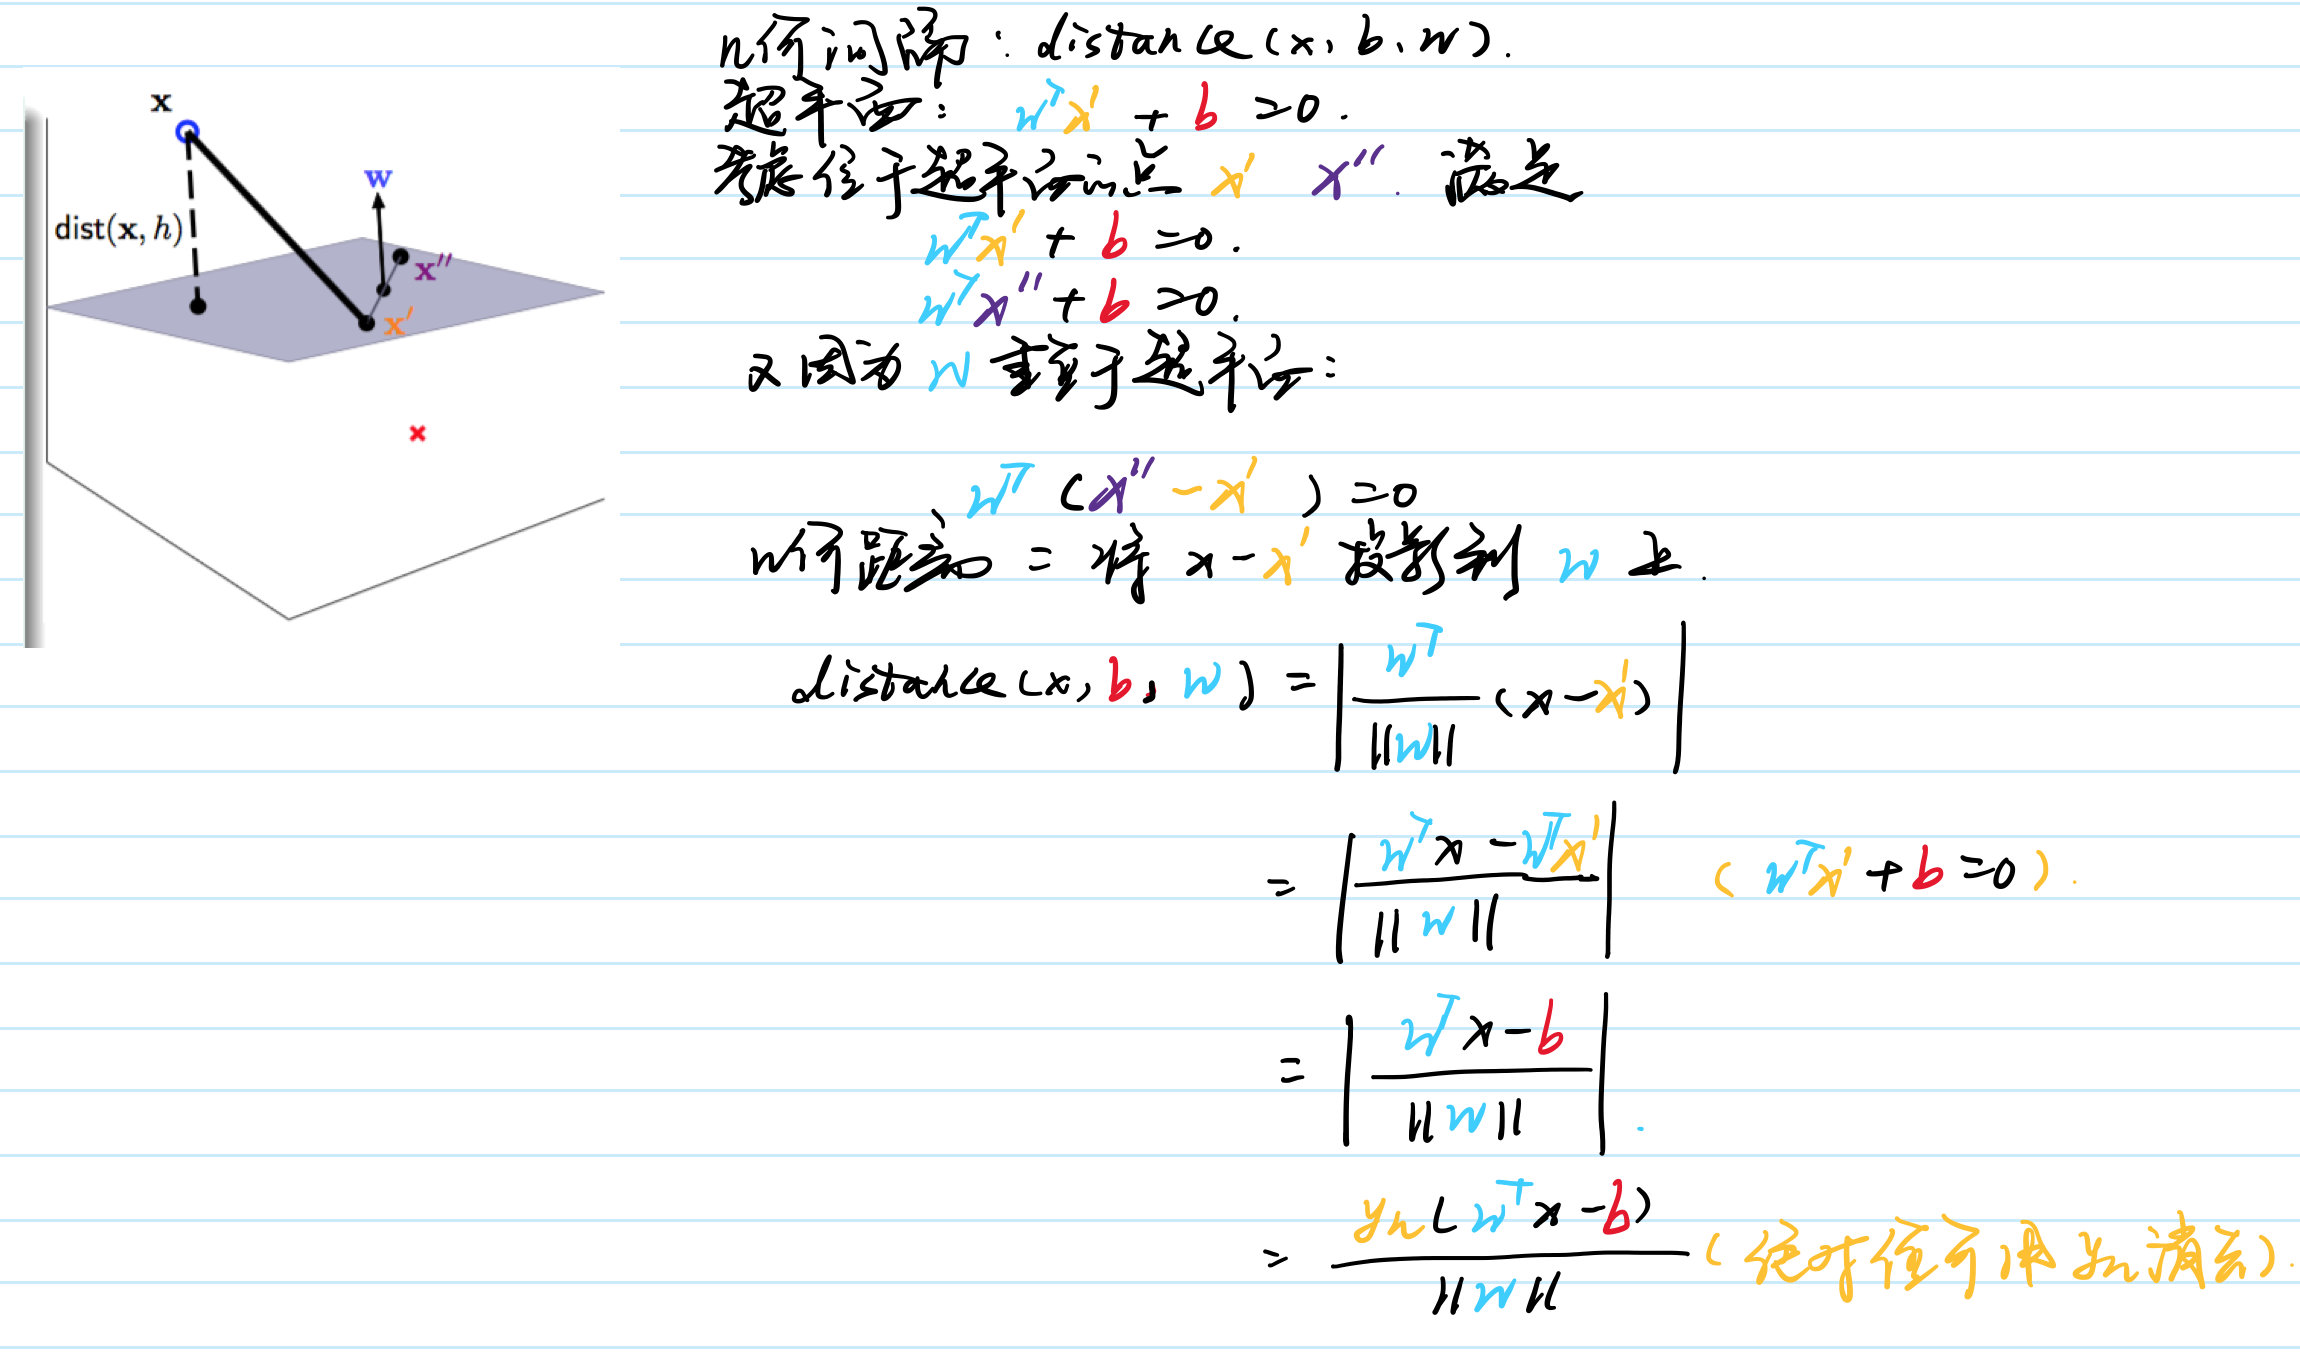 x
w
dist(x, h)
x''
x'
几何间隔: distance(x, b, w).
超平面: wᵀx' + b =0.
考虑位于超平面的点 x' x''. 满足
wᵀx' + b =0.
wᵀx'' + b =0.
又因为 w 垂直于超平面:
wᵀ (x'' - x') =0
几何距离 = 将 x-x' 投影到 w 上.
distance(x, b, w) = | wᵀ / ||w|| (x-x') |
= | (wᵀx - wᵀx') / ||w|| | ( wᵀx' + b =0).
= | (wᵀx - b) / ||w|| |.
= yn(wᵀx - b) / ||w|| (绝对值可用yn消去).